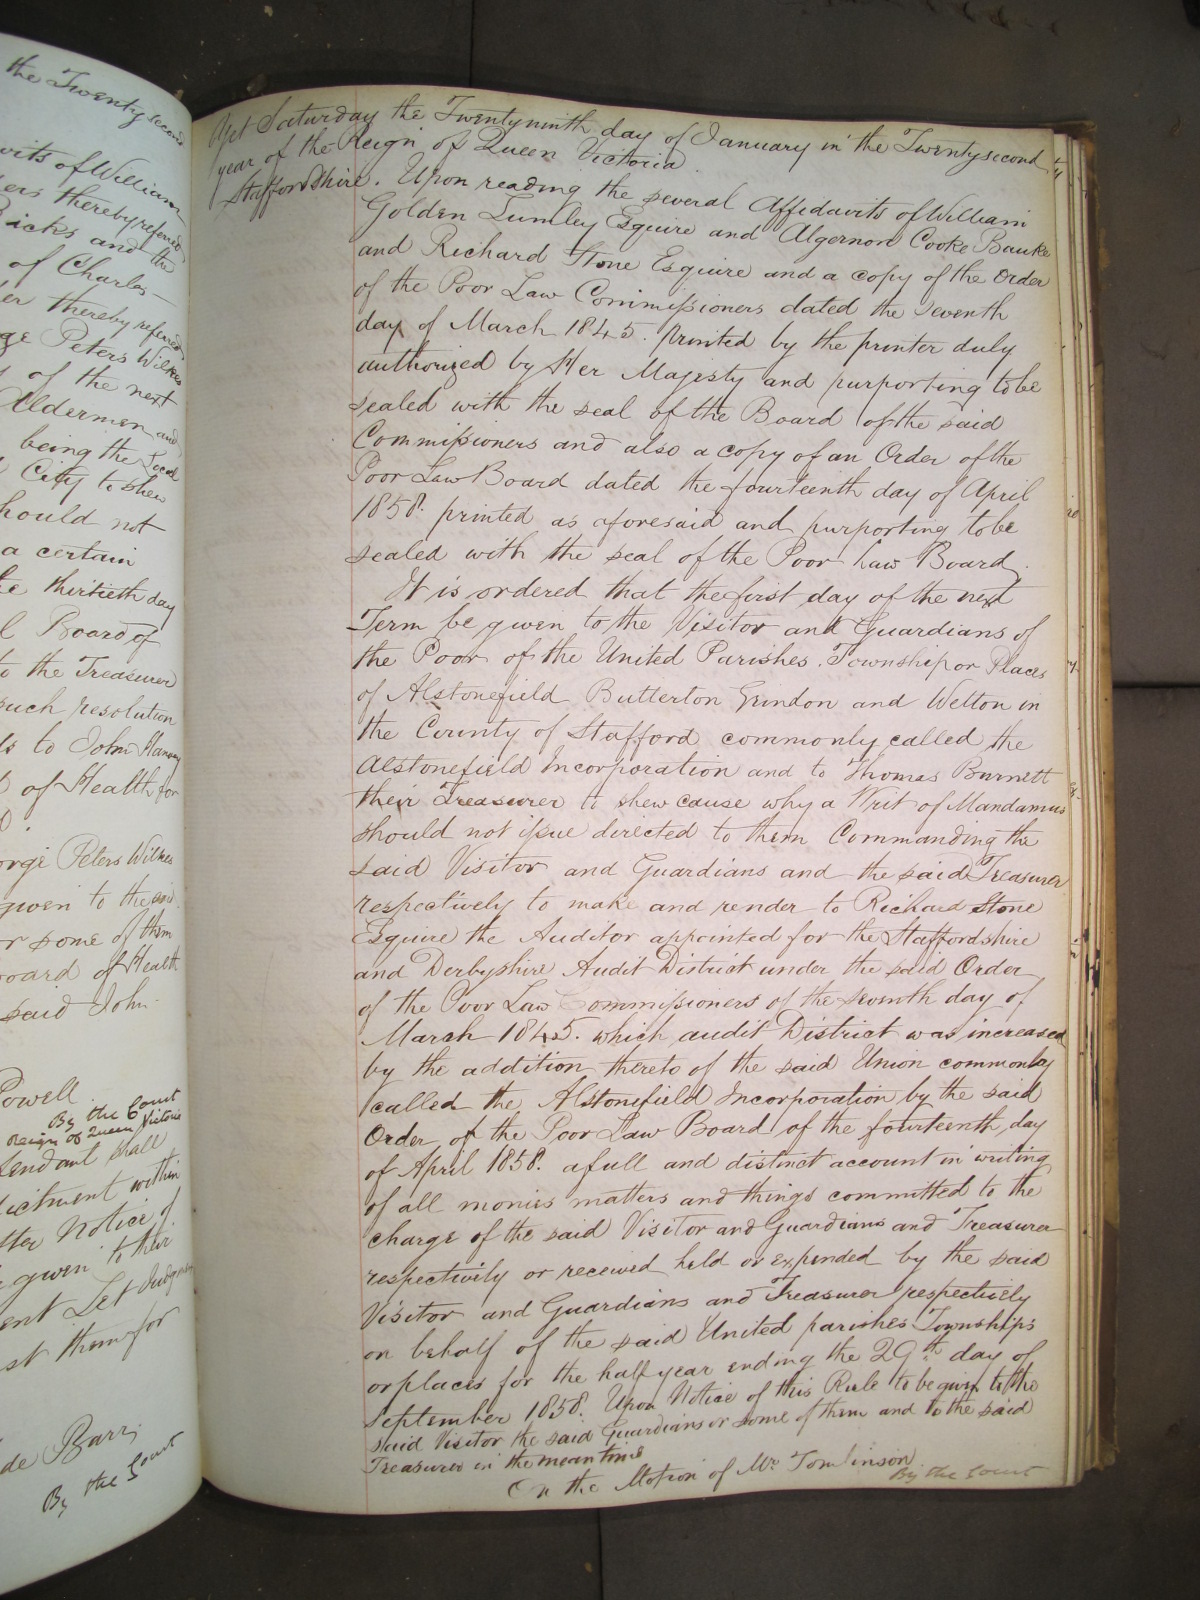 the Twenty second
vits of William
ers thereby referred
Ricks and the
of Charles
er thereby referred
ge Peters Wilkes
s of the next
Aldermen and
being the Local
City to shew
hould not
a certain
the thirtieth day
l Board of
to the Treasurer
such resolution
to John
of Health for
orge Peters Wilkes
given to the said
or some of them
oard of Health
said John
Powell
By the Court
Reign of Queen Victoria
fendant shall
dictment within
fter Notice of
given to their
ent Let Judgment
st them for
de Barr
By the Court
Yet Saturday the Twentyninth day of January in the Twentysecond
year of the Reign of Queen Victoria
Staffordshire. Upon reading the several Affidavits of William
Golden Lumley Esquire and Algernon Cooke Bauke
and Richard Stone Esquire and a copy of the Order
of the Poor Law Commissioners dated the seventh
day of March 1845. printed by the printer duly
authorized by Her Majesty and purporting to be
sealed with the seal of the Board of the said
Commissioners and also a copy of an Order of the
Poor Law Board dated the fourteenth day of April
1858. printed as aforesaid and purporting to be
sealed with the seal of the Poor Law Board.
It is ordered that the first day of the next
Term be given to the Visitor and Guardians of
the Poor of the United Parishes. Township or Places
of Alstonefield Butterton Grindon and Wetton in
the County of Stafford commonly called the
Alstonefield Incorporation and to Thomas Burnett
their Treasurer to shew cause why a Writ of Mandamus
should not issue directed to them Commanding the
said Visitor and Guardians and the said Treasurer
respectively to make and render to Richard Stone
Esquire the Auditor appointed for the Staffordshire
and Derbyshire Audit District under the said Order
of the Poor Law Commissioners of the seventh day of
March 1845. which audit District was increased
by the addition thereto of the said Union commonly
called the Alstonefield Incorporation by the said
Order of the Poor Law Board of the fourteenth day
of April 1858. a full and distinct account in writing
of all monies matters and things committed to the
charge of the said Visitor and Guardians and Treasurer
respectively or received held or expended by the said
Visitor and Guardians and Treasurer respectively
on behalf of the said United parishes Townships
or places for the half year ending the 29th day of
September 1858. Upon Notice of this Rule to be given to the
said Visitor the said Guardians or some of them and to the said
Treasurer in the mean time
On the Motion of Mr Tomlinson
By the Court